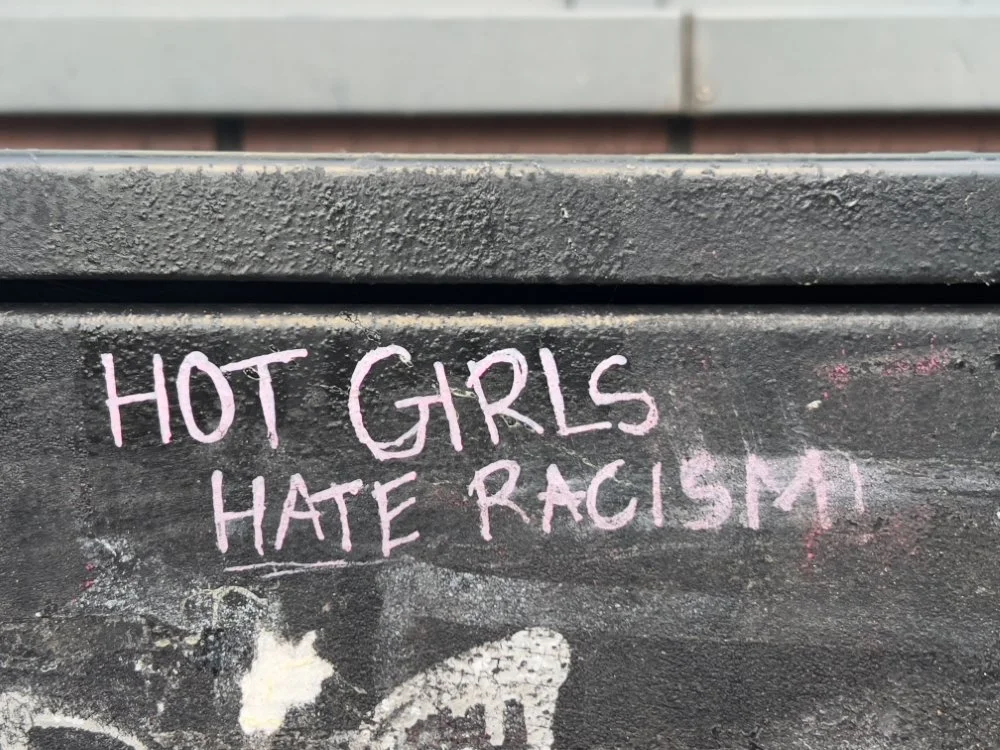 HOT GIRLS
HATE RACISM!